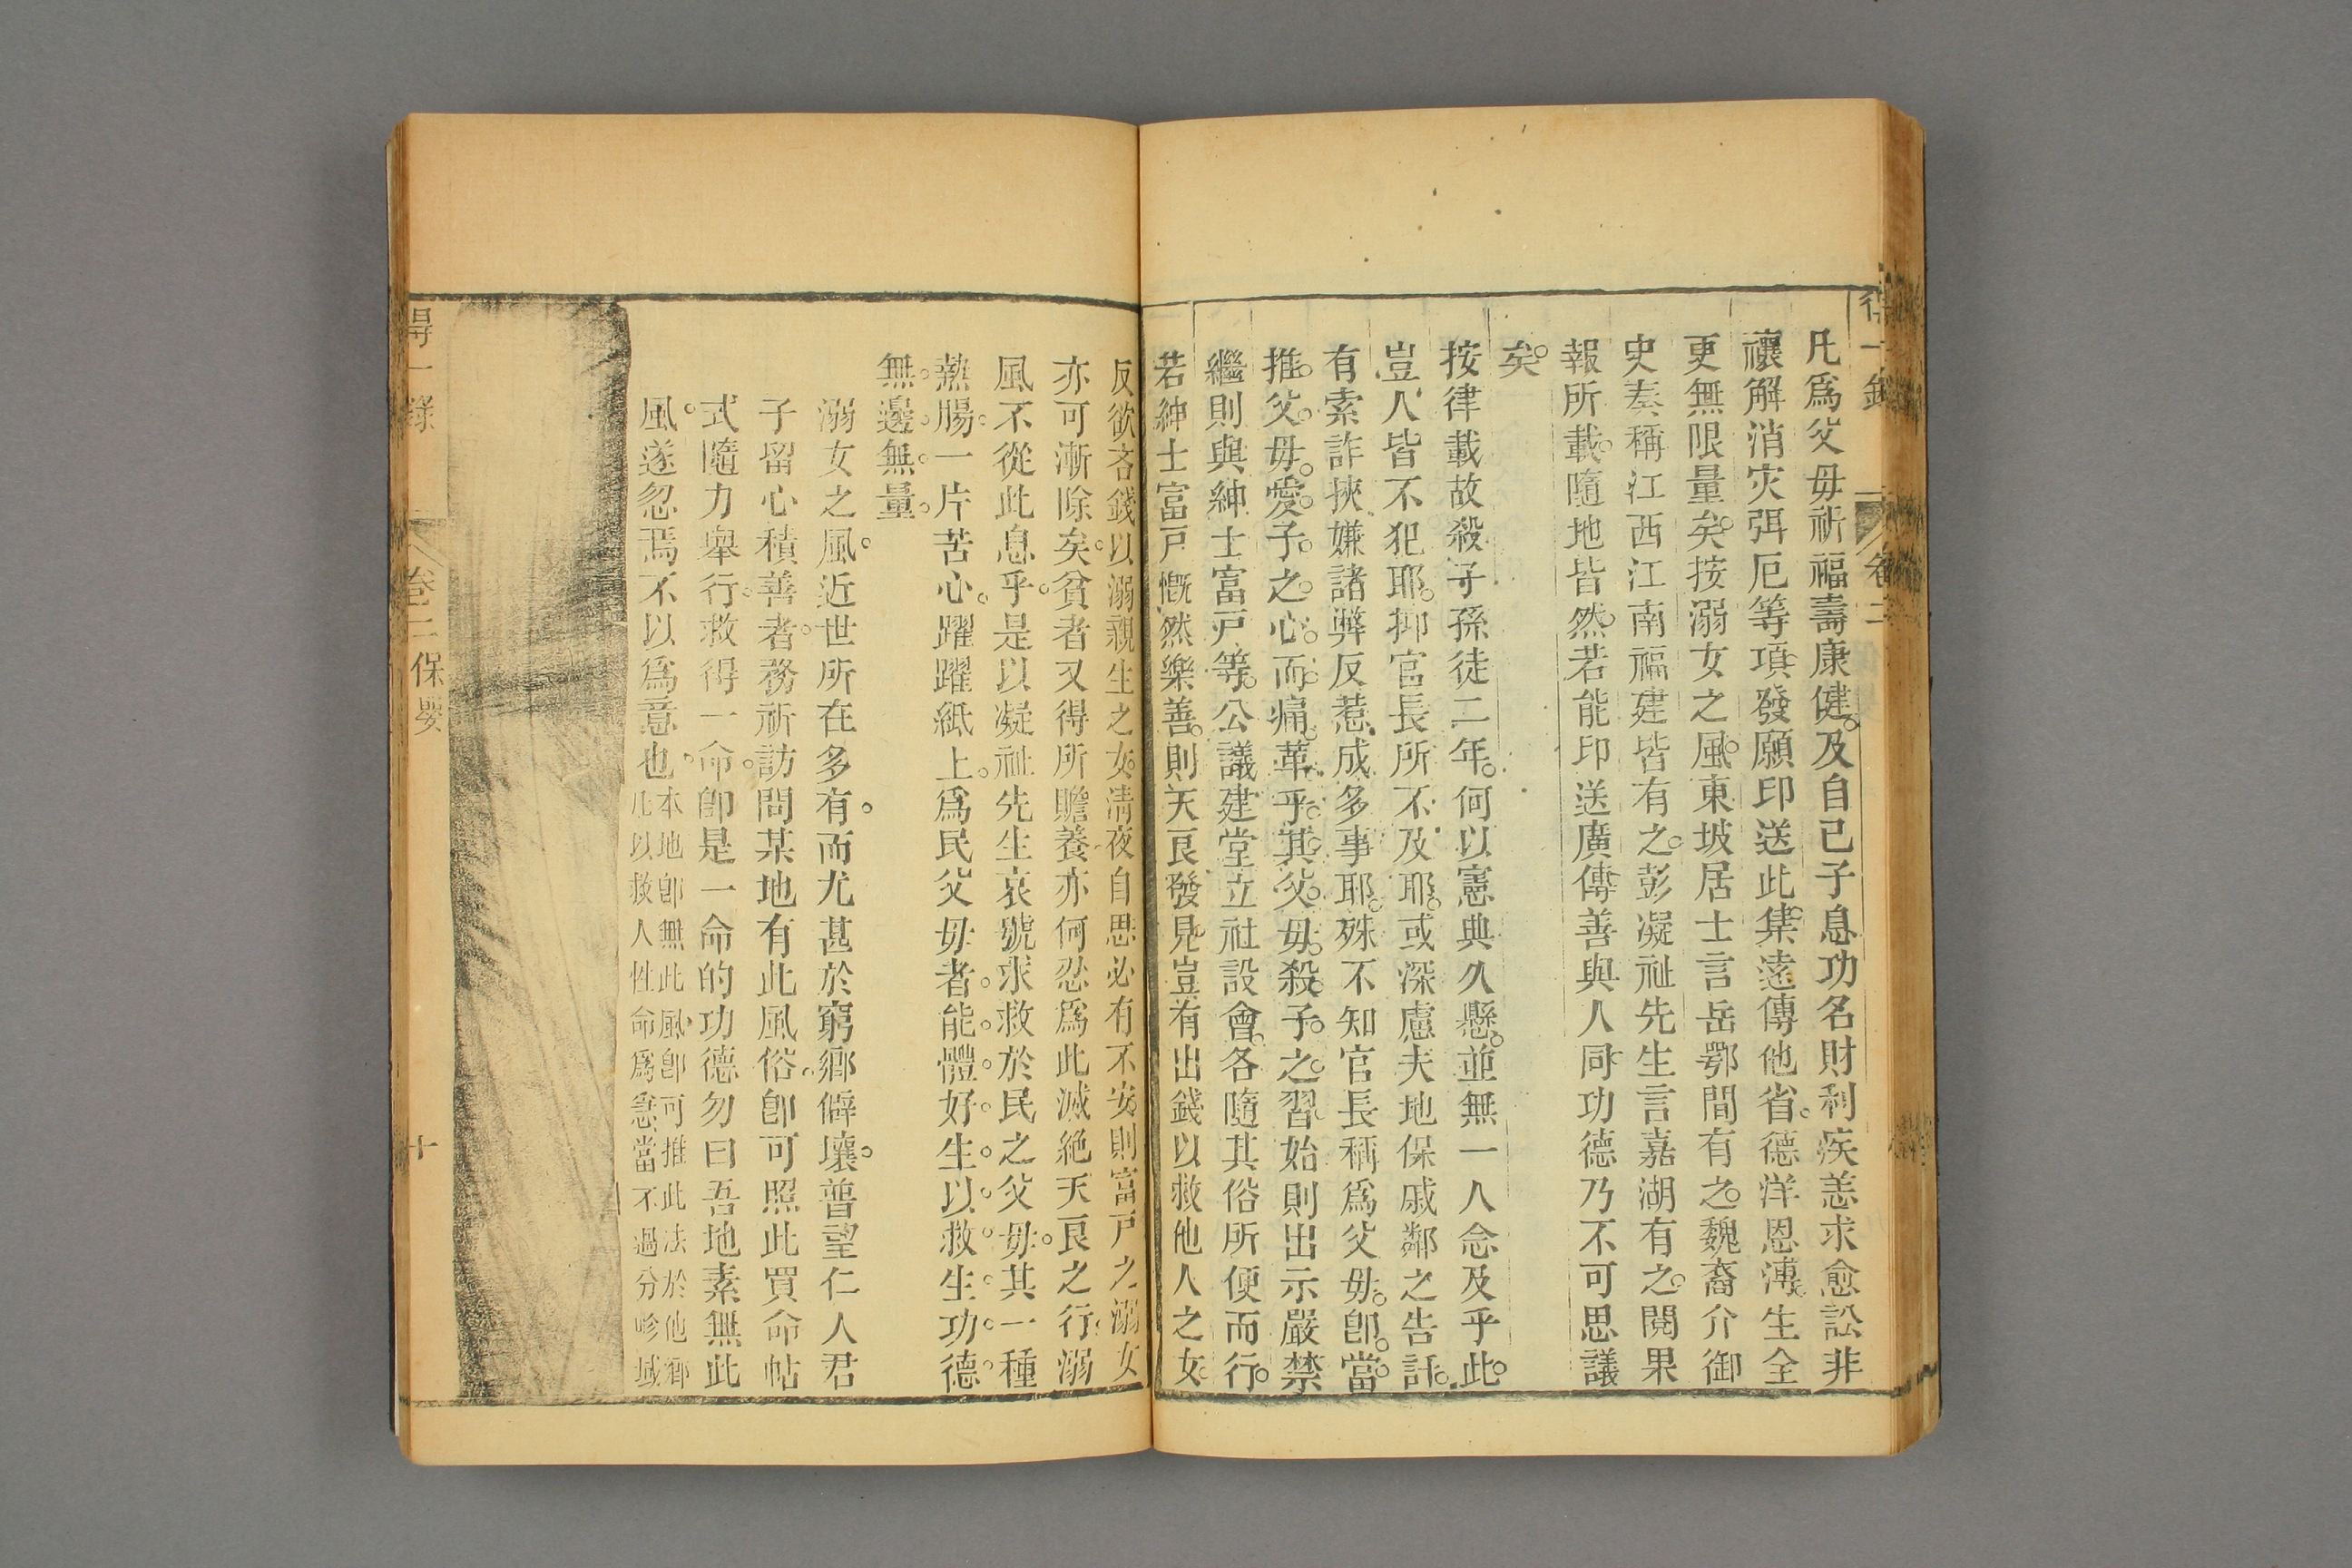 得一錄 卷二
凡爲父毋祈福壽康健。及自己子息功名財利疾恙求愈訟非
禳解消灾弭厄等項。發願印送此集。遠傳他省。德洋恩溥。生全
更無限量矣。按溺女之風。東坡居士言岳鄂間有之。魏裔介御
史奏稱江西江南福建皆有之。彭凝祉先生言嘉湖有之。閱果
報所載。隨地皆然。若能印送廣傳善與人同。功德乃不可思議
矣。
按律載故殺子孫徒二年。何以憲典久懸。並無一人念及乎此。
豈人皆不犯耶。抑官長所不及耶。或深慮夫地保戚鄰之告訐。
有索詐挾嫌諸弊反惹成多事耶。殊不知官長稱爲父毋。卽。當。
推。父。毋。愛。子。之。心。而。痛。革。乎。其。父。毋。殺。子。之。習。始則出示嚴禁
繼則與紳士富戸等。公議建堂立社設會。各隨其俗所便而行。
若紳士富戸慨然樂善。則天良發見。豈有出錢以救他人之女。
反欲吝錢以溺親生之女。清夜自思必有不安。則富戸之溺女
亦可漸除矣。貧者又得所贍養。亦何忍爲此滅絶天良之行。溺
風不從此息乎。是以凝祉先生哀號求救於民之父毋。其一種
熱腸。一片苦心。躍躍紙上。爲民父毋者。能。體。好。生。以。救。生。功。德。
無。邊。無。量。
溺女之風。近世所在多有。而尤甚於窮鄉僻壤。普望仁人君
子留心積善者。務祈訪問某地有此風俗。卽可照此買命帖
式隨力舉行。救得一命。卽是一命的功德勿曰吾地素無此
風。遂忽焉不以爲意也。
本地卽無此風。卽可推此法於他鄉
凡以救人性命爲急當不過分畛域
得一錄 卷二 保嬰 十